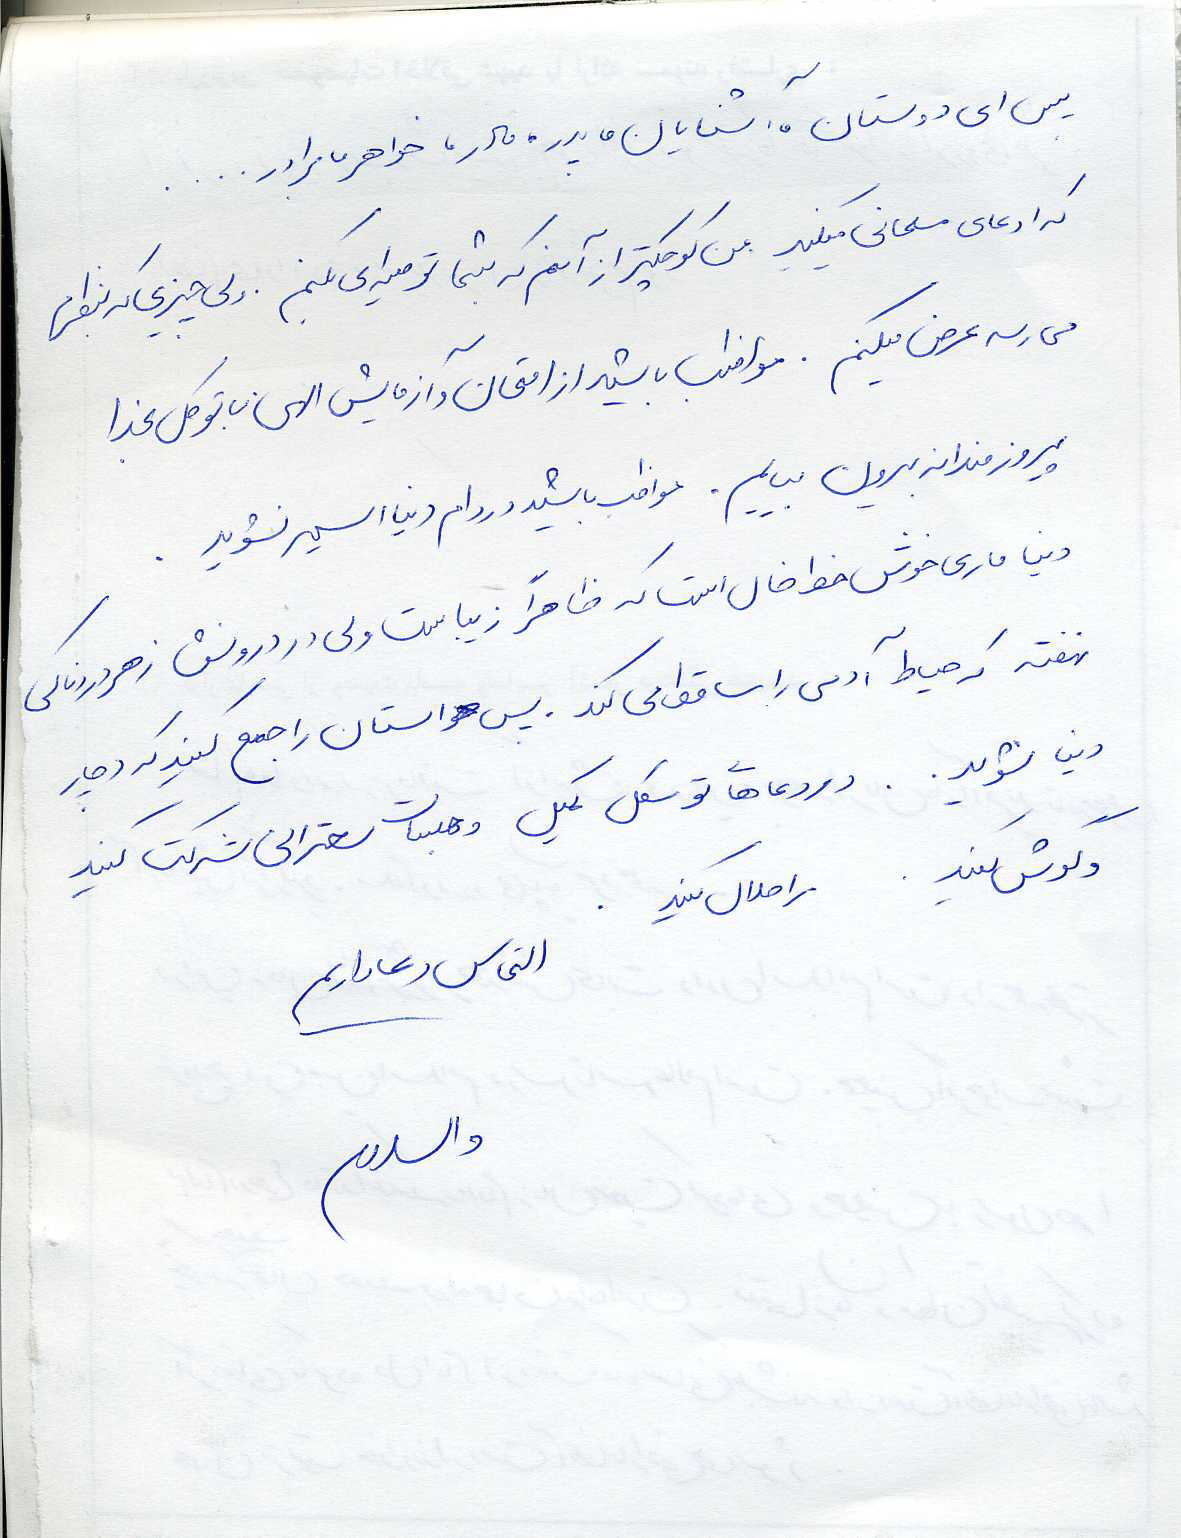 پس ای دوستان، آشنایان، پدر، مادر، خواهر، برادر ....
که ادعای مسلمانی میکنید من کوچکتر از آنم که بشما توصیه‌ای بکنم. ولی چیزی که بنظرم
می رسد عرض میکنم. مواظب باشید از امتحان و آزمایش الهی با توکل بخدا
پیروزمندانه بیرون بیایم. مواظب باشید در دام دنیا اسیر نشوید.
دنیا ماری خوش خط و خال است که ظاهراً زیباست ولی در درونش زهر دردناکی
نهفته که حیاط آدمی را ساقط می کند. پس حواستان را جمع کنید که دچار
دنیا نشوید. در دعاهای توسل کمیل و جلسات سخنرانی شرکت کنید
و گوش کنید. مرا حلال کنید.
التماس دعا داریم
والسلام